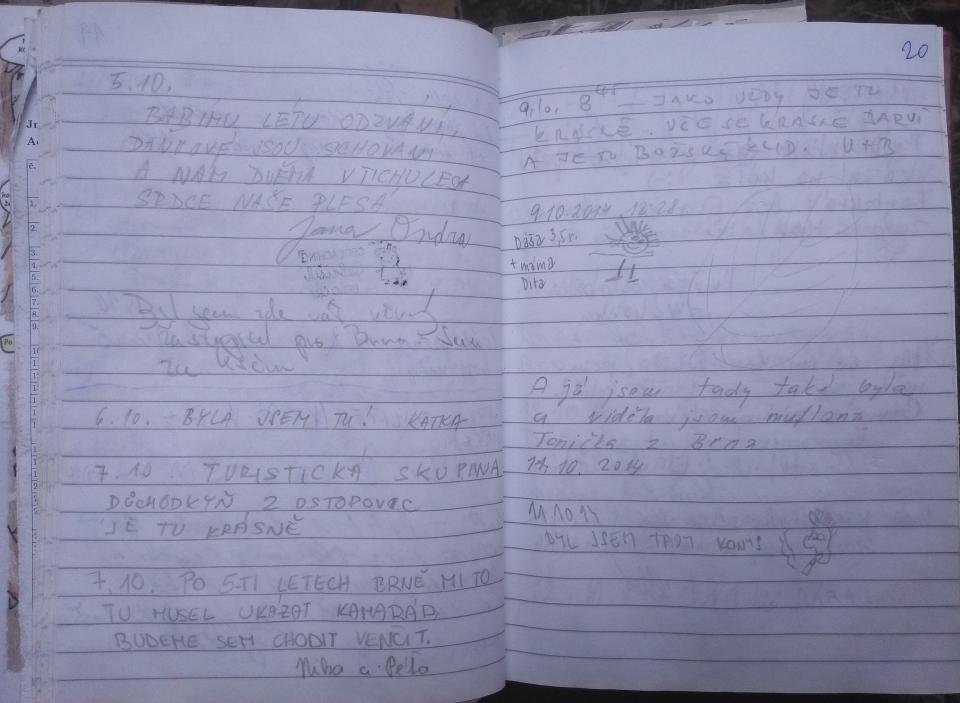 5.10.
BABÍMU LÉTU ODZVÁNÍ,
DAŇKOVÉ JSOU SCHOVÁNI
A NÁM DVĚMA V TICHU LESA
SRDCE NAŠE PLESÁ
Jana Ondra
Byl jsem zde váš
pro Brno
6.10. BYLA JSEM TU! KATKA
7.10 TURISTICKÁ SKUPINA
DŮCHODKYŇ Z OSTOPOVIC
JE TU KRÁSNĚ
7.10. PO 5TI LETECH BRNĚ MI TO
TU MUSEL UKÁZAT KAMARÁD,
BUDEME SEM CHODIT VENČIT.
Niko a Péťa
20
9.10. 8 — JAKO VŽDY JE TU
KRÁSNĚ. VŠE SE KRÁSNĚ BARVÍ
A JE TU BOŽSKÝ KLID. V+B
9.10.2014 12:28
Dáša 3,5 r.
+ máma
Dita
A já jsem tady také byla
a viděla jsem muflona
Tonička z Brna
11.10. 2014
11 10 14
BYL JSEM TADY KONYS